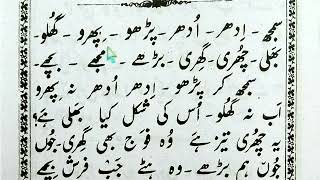 سمجھ ۔ اِدھر ۔ اُدھر ۔ پڑھو ۔ پھرو ۔ گھلو ۔
بھلی ۔ چھُری ۔ گھری ۔ بڑھے ۔ مجھے ۔ بجھے ۔
سمجھ کر پڑھو ۔ اِدھر اُدھر نہ پھرو
اَب نہ گھلو ۔ اُس کی شکل کیا بھلی ہے؟
یہ چھُری تیز ہے وُہ فوج بھی گھری ۔ جُوں
جُوں ہم بڑھے ۔ وہ ہٹے جب فرش بچھے